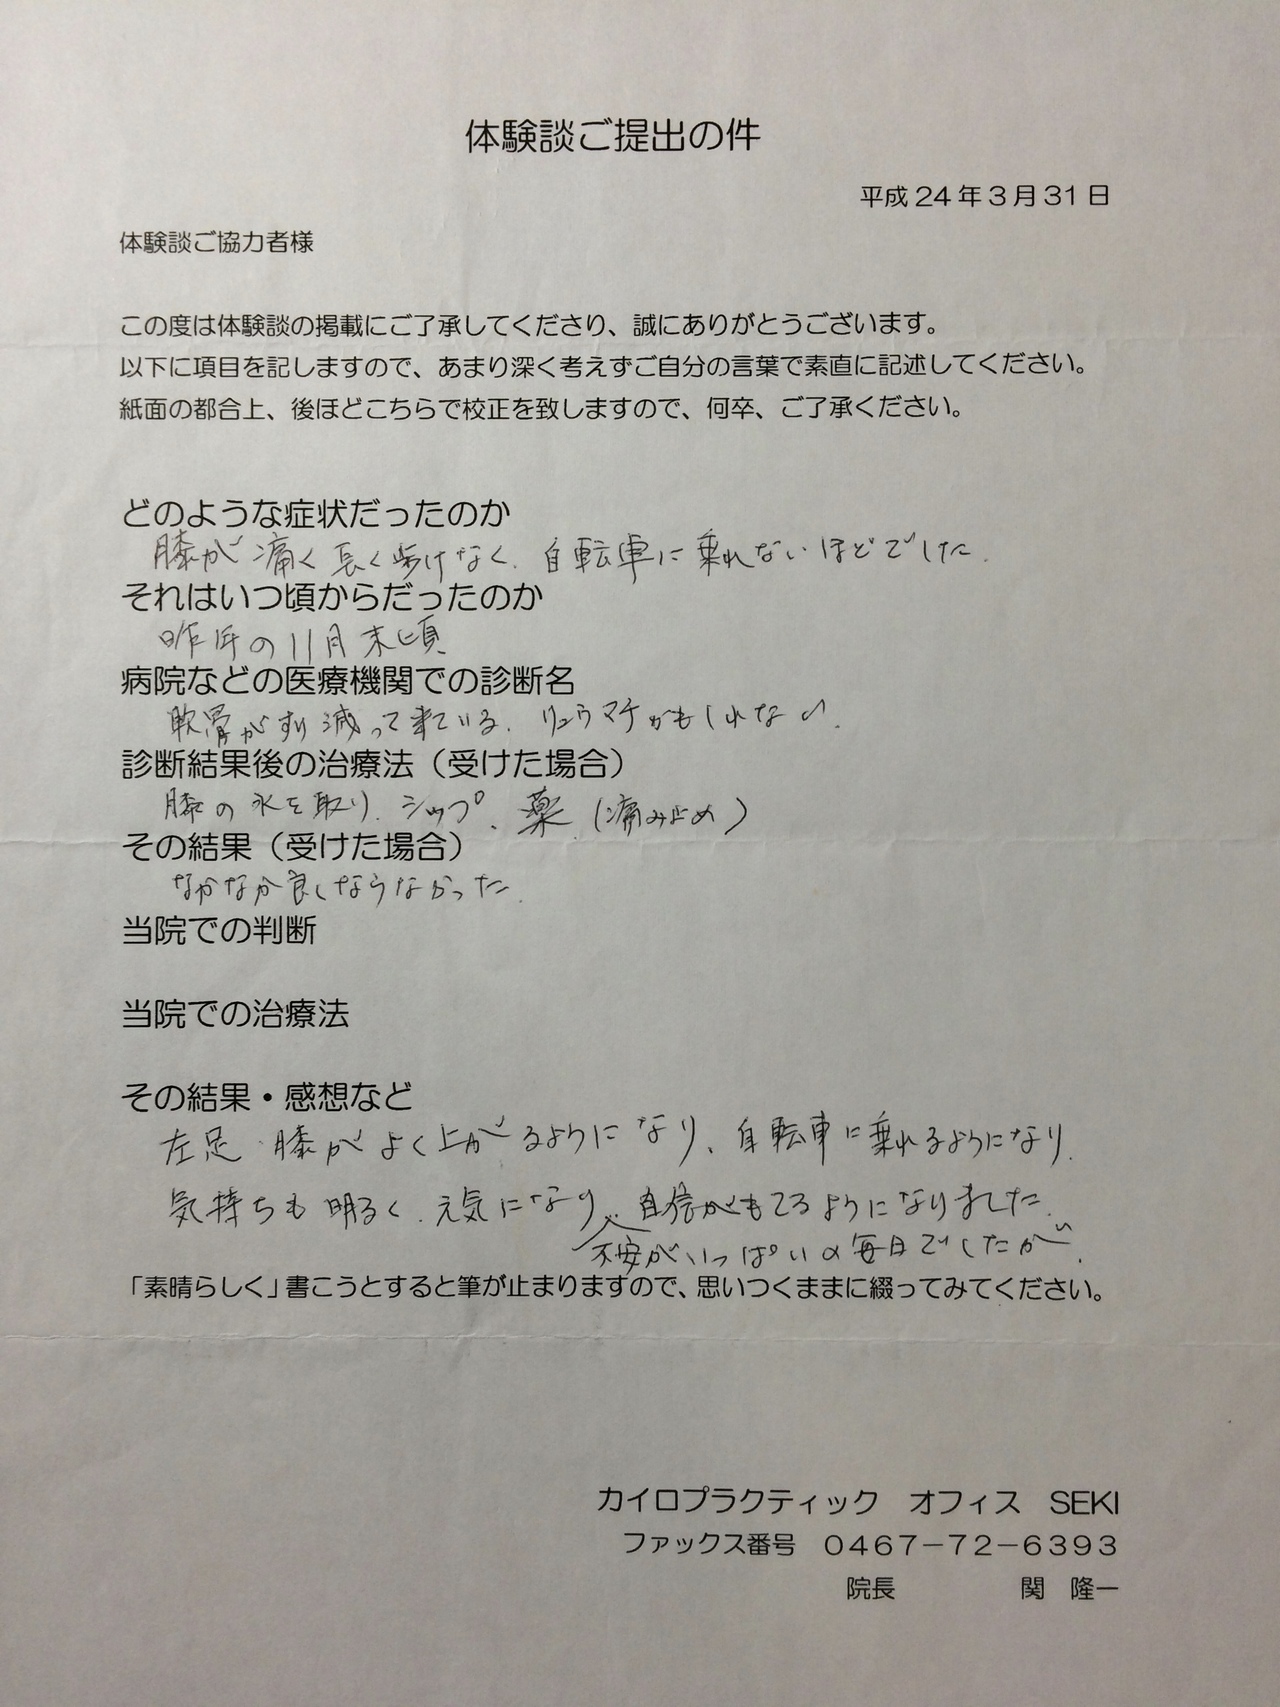 体験談ご提出の件
平成24年3月31日
体験談ご協力者様
この度は体験談の掲載にご了承してくださり、誠にありがとうございます。
以下に項目を記しますので、あまり深く考えずご自分の言葉で素直に記述してください。
紙面の都合上、後ほどこちらで校正を致しますので、何卒、ご了承ください。
どのような症状だったのか
膝が痛く長く歩けなく、自転車に乗れないほどでした。
それはいつ頃からだったのか
昨年の11月末頃
病院などの医療機関での診断名
軟骨がすり減って来ている。リュウマチかもしれない。
診断結果後の治療法（受けた場合）
膝の水を取り、シップ、薬（痛み止め）
その結果（受けた場合）
なかなか良くならなかった。
当院での判断
当院での治療法
その結果・感想など
左足、膝がよく上がるようになり、自転車に乗れるようになり、
気持ちも明るく、元気になり、自信がもてるようになりました。
不安がいっぱいの毎日でしたが、
「素晴らしく」書こうとすると筆が止まりますので、思いつくままに綴ってみてください。
カイロプラクティック オフィス SEKI
ファックス番号 0467－72－6393
院長 関 隆一